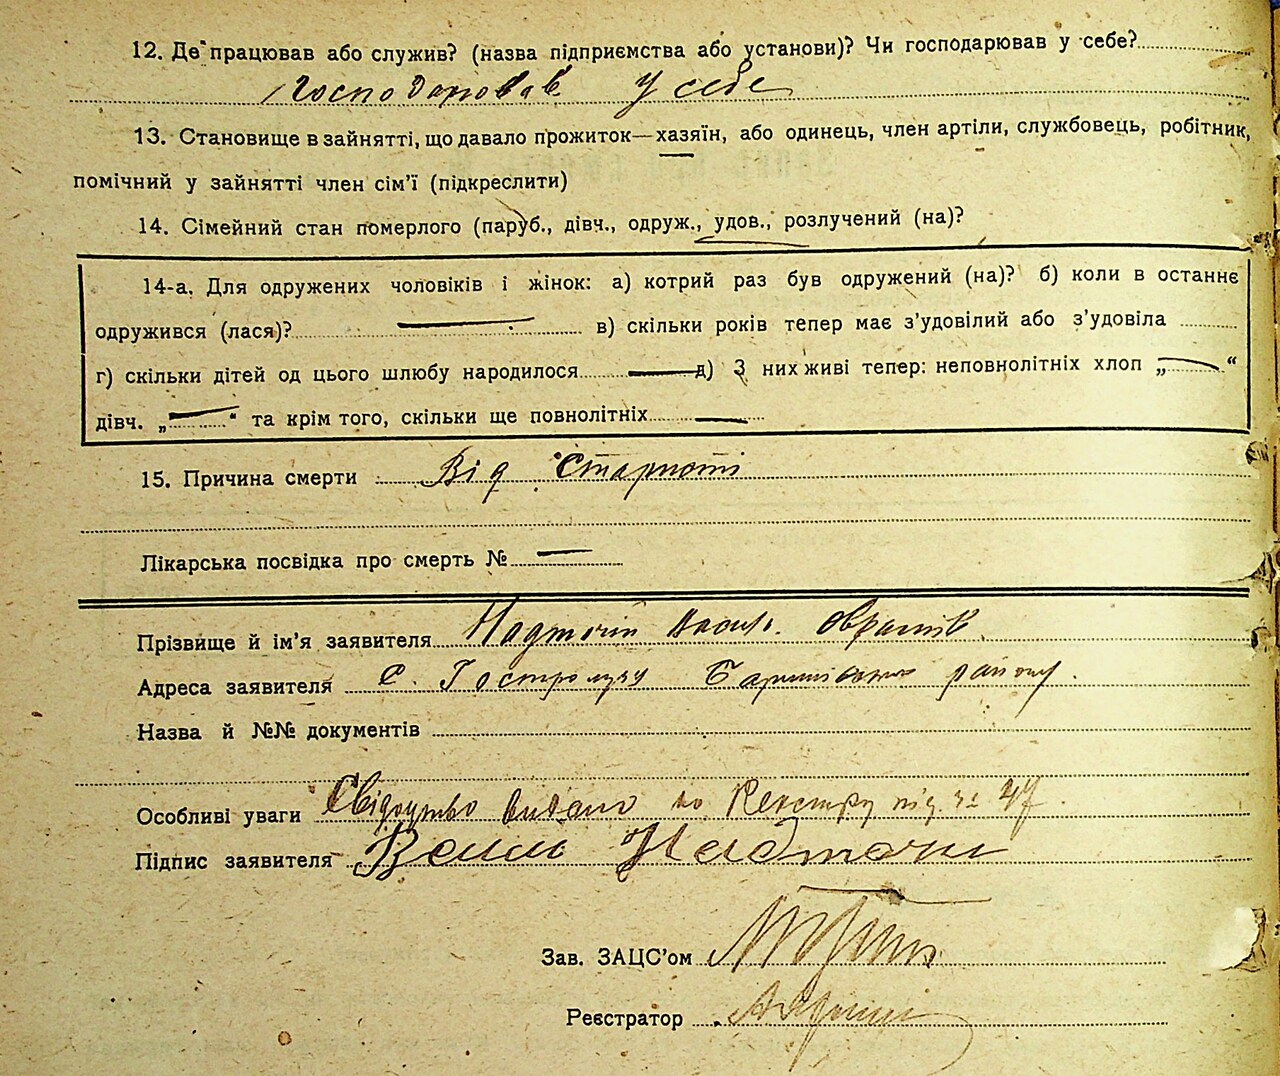 12. Де працював або служив? (назва підприємства або установи)? Чи господарював у себе?
Господарював У себе
13. Становище в зайнятті, що давало прожиток—хазяїн, або одинець, член артіли, службовець, робітник,
помічний у зайнятті член сім'ї (підкреслити)
14. Сімейний стан померлого (паруб., дівч., одруж., удов., розлучений (на)?
14-а. Для одружених чоловіків і жінок: а) котрий раз був одружений (на)? б) коли в останнє
одружився (лася)? — в) скільки років тепер має з'удовілий або з'удовіла
г) скільки дітей од цього шлюбу народилося — д) З них живі тепер: неповнолітніх хлоп „—“
дівч. „—“ та крім того, скільки ще повнолітніх —
15. Причина смерти Від Старости
Лікарська посвідка про смерть № —
Прізвище й ім'я заявителя Надточій Василь
Адреса заявителя с. Гостролуччя Баришівського району.
Назва й №№ документів
Особливі уваги Свідоцтво видано по Реєстру під № 47
Підпис заявителя Василь Надточий
Зав. ЗАЦС'ом
Реєстратор